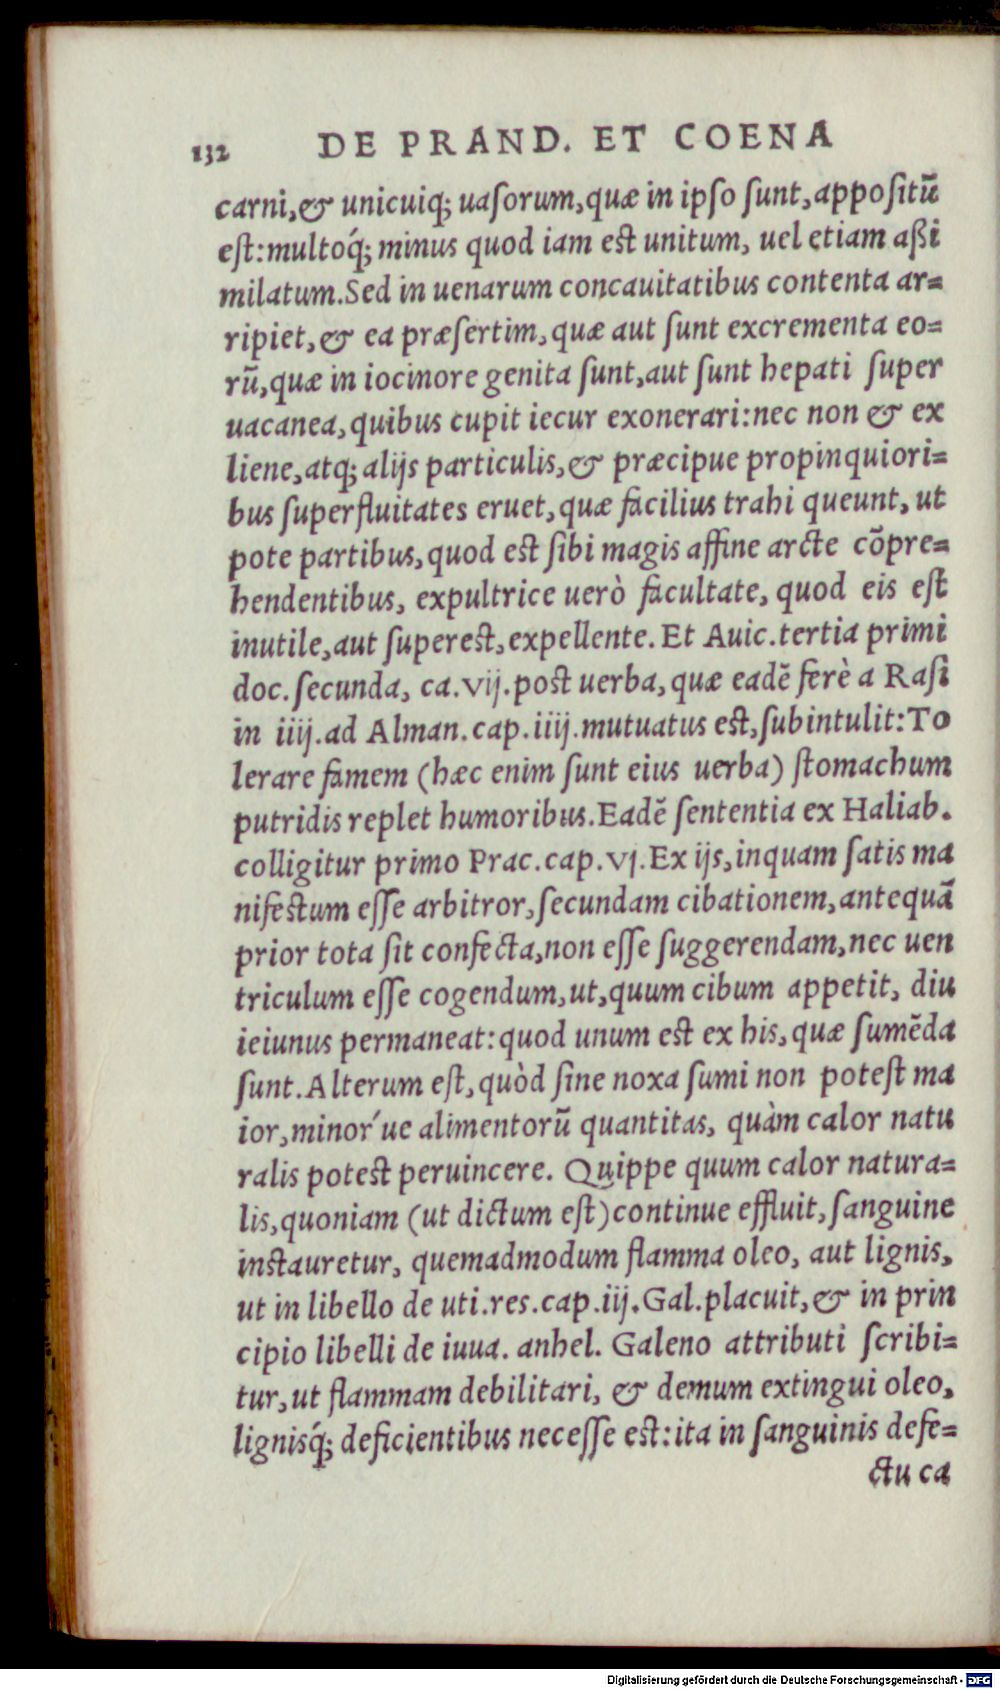 132 DE PRAND. ET COENA
carni,& unicuiq; uaſorum,quæ in ipſo ſunt,appoſitū
eſt:multoq́; minus quod iam eſt unitum, uel etiam aßi
milatum.Sed in uenarum concauitatibus contenta ar=
ripiet,& ea præſertim,quæ aut ſunt excrementa eo=
rū,quæ in iocinore genita ſunt,aut ſunt hepati ſuper
uacanea,quibus cupit iecur exonerari:nec non & ex
liene,atq; alijs particulis,& præcipue propinquiori=
bus ſuperfluitates eruet,quæ facilius trahi queunt, ut
pote partibus,quod eſt ſibi magis affine arcte cōpre=
hendentibus, expultrice uerò facultate, quod eis eſt
inutile,aut ſupereſt,expellente. Et Auic.tertia primi
doc.ſecunda, ca.vij.poſt uerba,quæ eadē ferè a Raſi
in iiij.ad Alman.cap.iiij.mutuatus eſt,ſubintulit:To
lerare famem (hæc enim ſunt eius uerba) ſtomachum
putridis replet humoribus.Eadē ſententia ex Haliab.
colligitur primo Prac.cap.vj.Ex ijs,inquam ſatis ma
nifeſtum eſſe arbitror,ſecundam cibationem,antequā
prior tota ſit confecta,non eſſe ſuggerendam,nec uen
triculum eſſe cogendum,ut,quum cibum appetit, diu
ieiunus permaneat:quod unum eſt ex his,quæ ſumēda
ſunt.Alterum eſt,quòd ſine noxa ſumi non poteſt ma
ior,minor´ue alimentorū quantitas, quàm calor natu
ralis poteſt peruincere. Quippe quum calor natura=
lis,quoniam (ut dictum eſt)continue effluit,ſanguine
inſtauretur, quemadmodum flamma oleo, aut lignis,
ut in libello de uti.res.cap.iij.Gal.placuit,& in prin
cipio libelli de iuua. anhel. Galeno attributi ſcribi=
tur,ut flammam debilitari, & demum extingui oleo,
lignisq́; deficientibus neceſſe eſt:ita in ſanguinis defe=
ctu ca
Digitalisierung gefördert durch die Deutsche Forschungsgemeinschaft - DFG